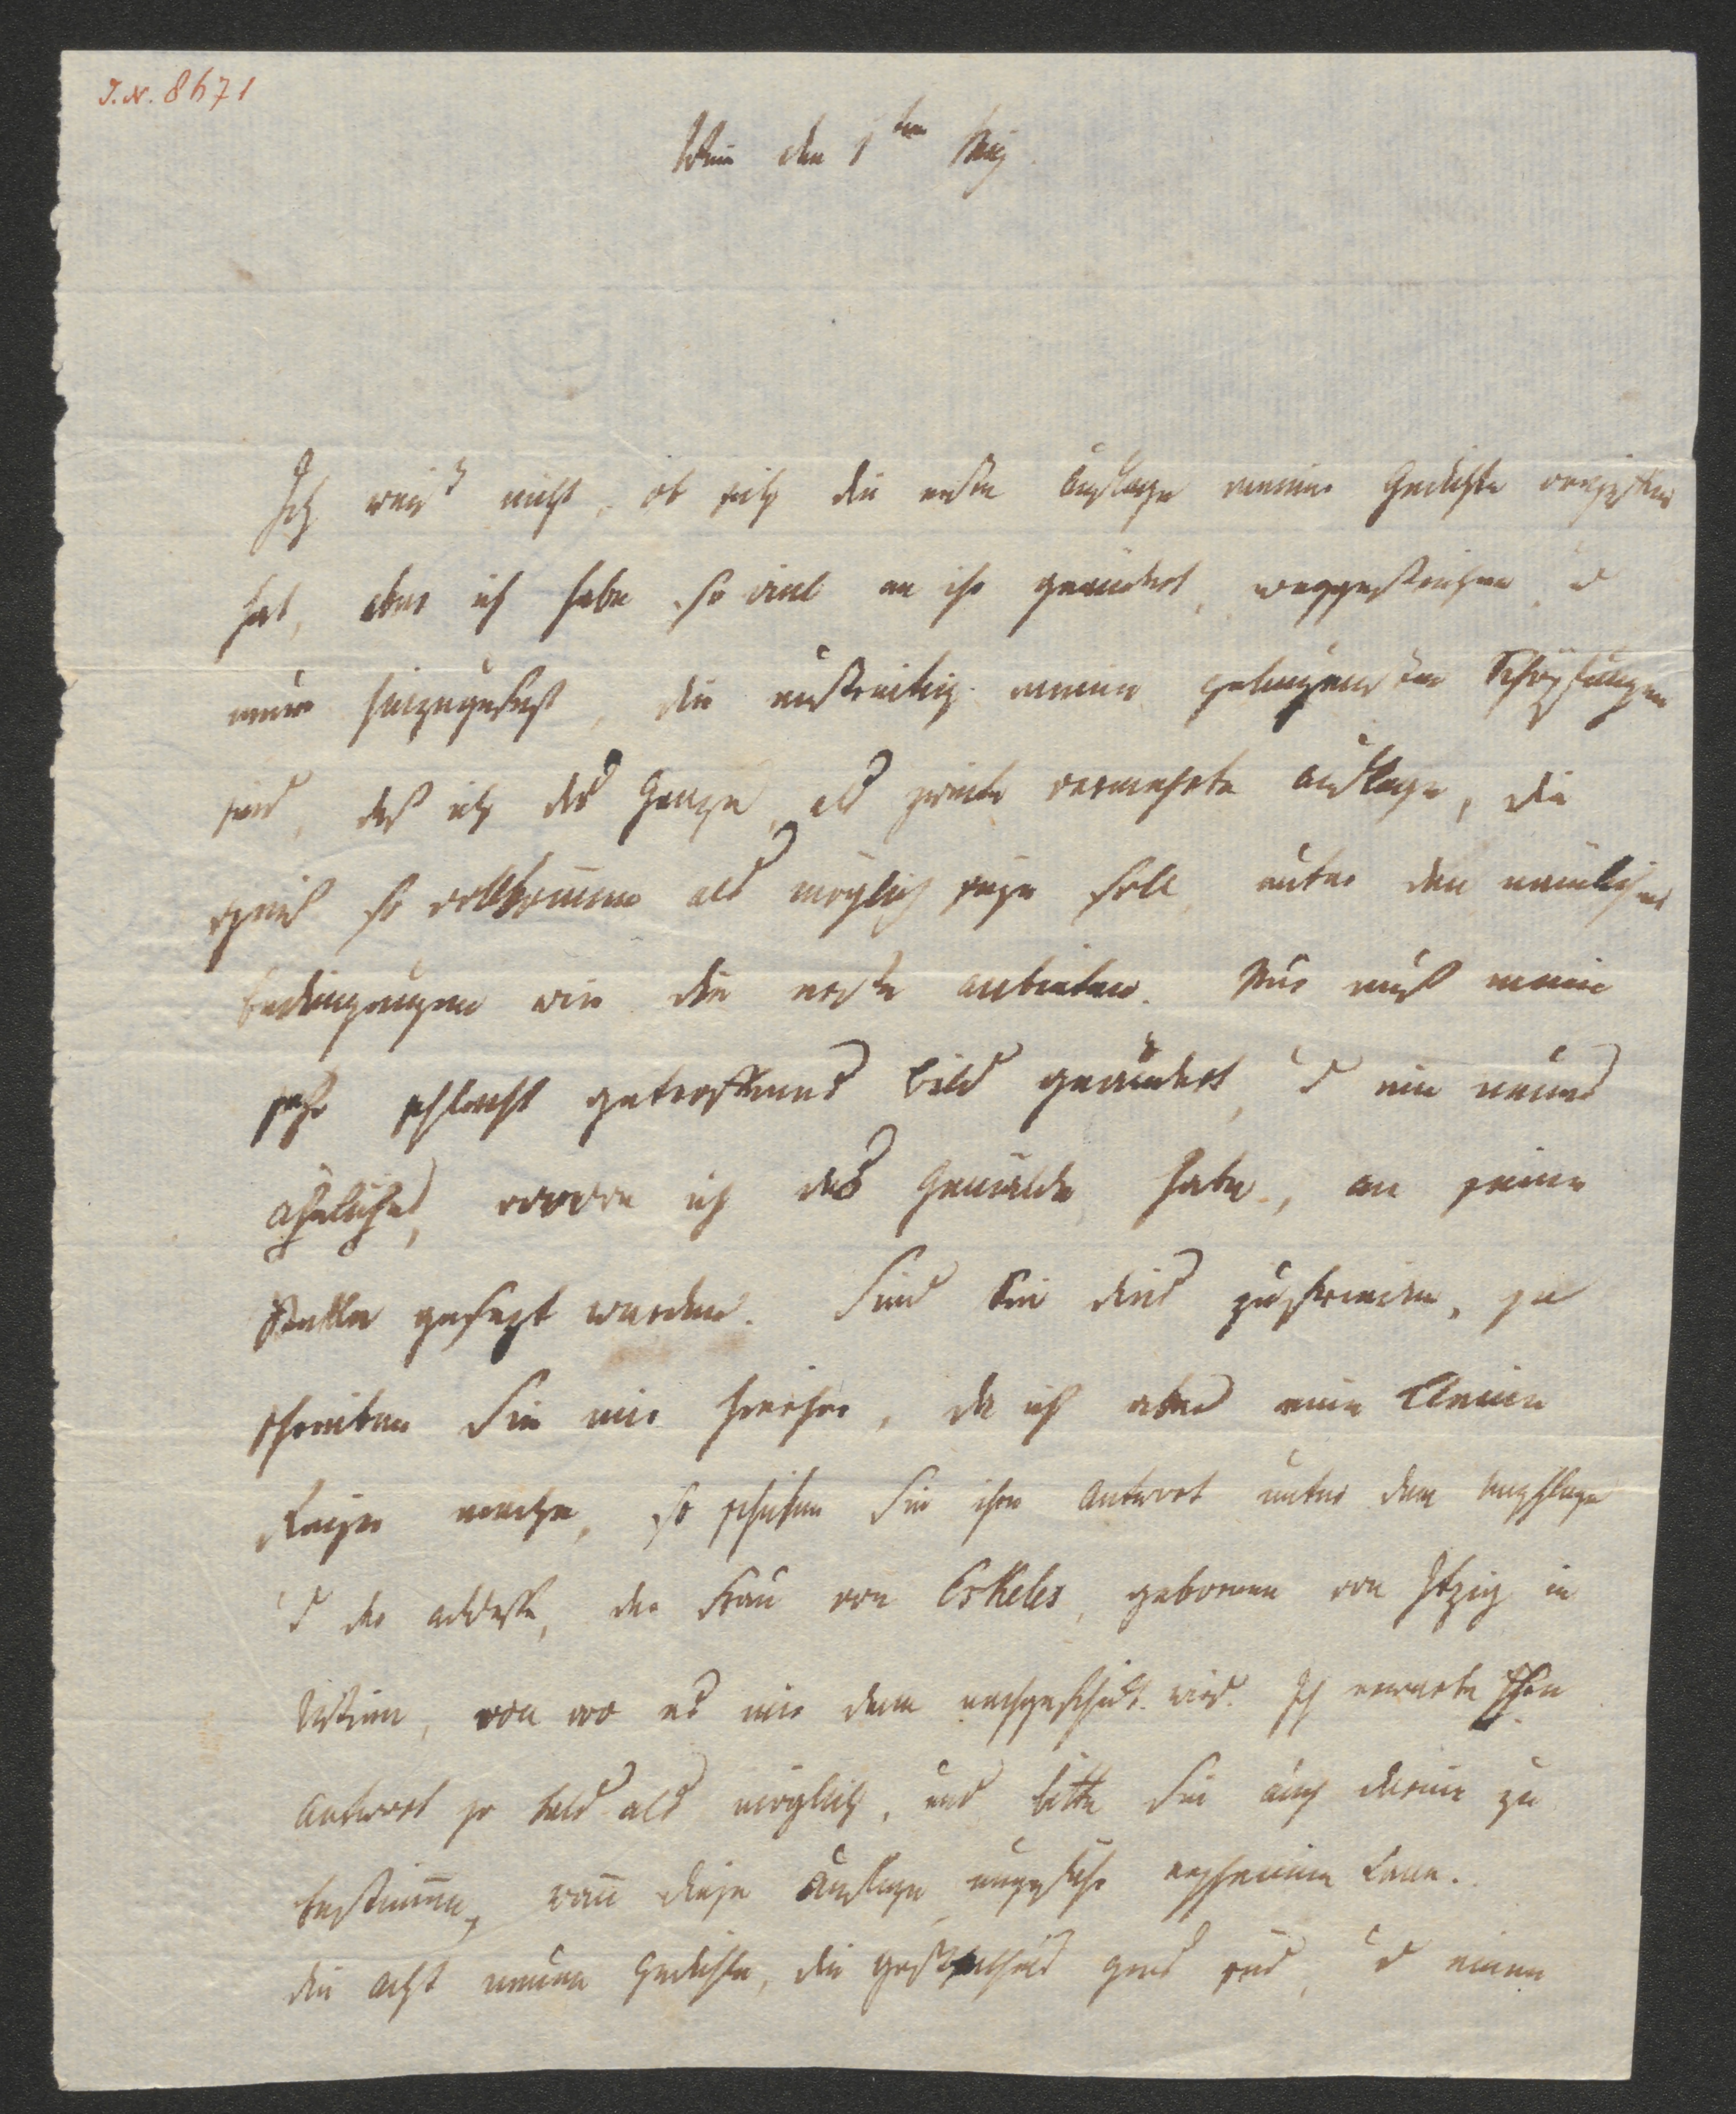 J. N. 8671
Wien den 1ten May
Ich weiß nicht, ob sich die erste Auflage meiner Gedichte vergriffen
hat, aber ich habe so viel an ihr geändert, weggestrichen u
neue hinzugesezt, die unstreitig meine gelungensten Schöpfungen
sind, daß ich das Ganze als zweite vermehrte Auflage, die
so vollkommen als möglich seyn soll unter den nämlichen
Bedingungen wie die erste anbieten. Nur muß mein
sehr schlecht getroffenes Bild geändert, u ein neues
ähnliches, wovon ich das Gemälde habe, an seine
Stelle gesezt werden. Sind Sie dies zufrieden, so
schreiben Sie mir hierher, da ich aber eine kleine
Reise mache, so schicken Sie ihre Antwort unter dem Umschlage
u der Addresse, der Frau von Eskeles, geborene von Itzig in
Wien, von wo es mir dann nachgeschickt wird. Ich erwarte Ihre
Antwort so bald als möglich, und bitte Sie auch darinn zu
bestimmen, wann diese Auflage ungefähr erscheinen kann.
die acht neuen Gedichte, die größtentheils sind, u einen